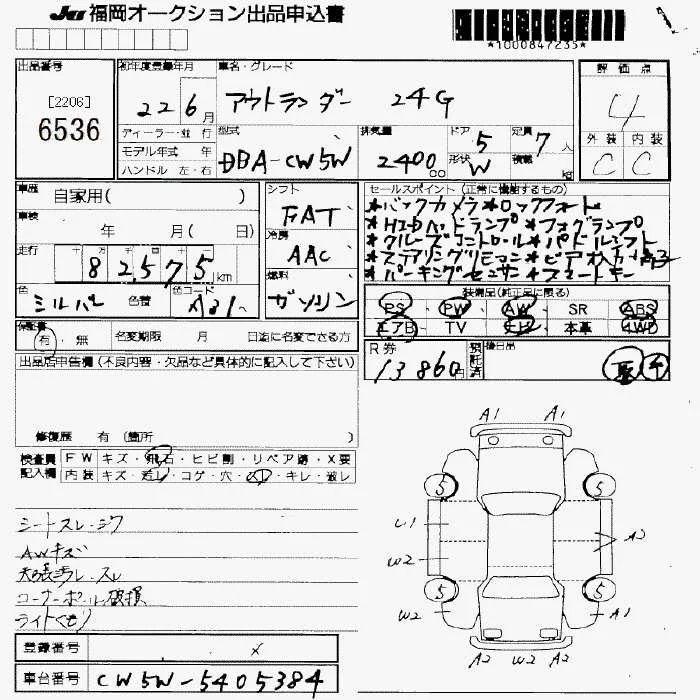 JU 福岡オークション出品申込書
*1000847235*
出品番号
[2206]
6536
初年度登録年月
22 6月
車名・グレード
アウトランダー 24G
評価点
4
外装 内装
C C
ディーラー・並行
モデル年式 年
ハンドル 左・右
型式
DBA-CW5W
排気量
2400cc
ドア 5
形状 W
定員 7人
積載 kg
車歴 自家用( )
車検 年 月( 日)
走行 82,575km
色 シルバー 色替
色コード A31
シフト
FAT
冷房
AAC
燃料
ガソリン
セールスポイント(正常に機能するもの)
*バックカメラ*ロックフォード
*HIDヘッドランプ*フォグランプ
*クルーズコントロール*パドルシフト
*ステアリングリモコン
*パーキングセンサー*スマートキー
装備品(純正品に限る)
PS PW AW SR ABS
エアB TV ナビ 本革 4WD
保証書 有・無 名変期限 月 日迄に名変できる方
R券
13860円
預託済
後日品
出品店申告欄(不良内容・欠品など具体的に記入して下さい)
修復歴 有(箇所 )
検査員記入欄
FW キズ・飛石・ヒビ割・リペア跡・X要
内装 キズ・汚レ・コゲ・穴・スレ・キレ・破レ
シートスレ・シワ
AWキズ
コーナーポール破損
ライトくもり
登録番号
車台番号 CW5W-5405384
A1 A1
5 5
U1
A2
W2
5 5
W2 A1
A2 W2 A2